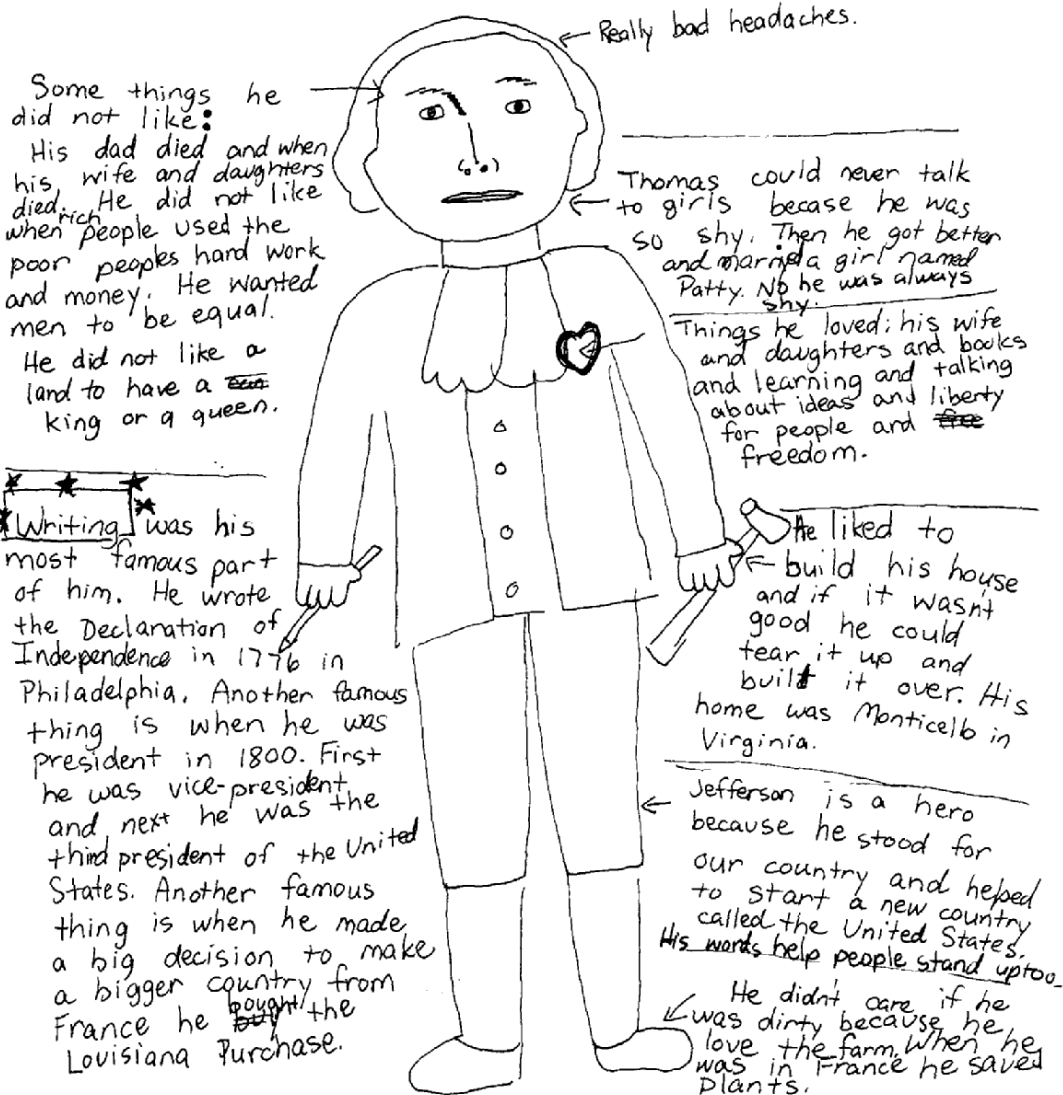 Really bad headaches.
Some things he
did not like:
His dad died and when
his wife and daughters
died. He did not like
when rich people used the
poor peoples hard work
and money. He wanted
men to be equal.
He did not like a
land to have a
king or a queen.
Writing was his
most famous part
of him. He wrote
the Declaration of
Independence in 1776 in
Philadelphia. Another famous
thing is when he was
president in 1800. First
he was vice-president
and next he was the
third president of the United
States. Another famous
thing is when he made
a big decision to make
a bigger country from
France he bought the
Louisiana Purchase.
Thomas could never talk
to girls becase he was
so shy. Then he got better
and married a girl named
Patty. No he was always
shy.
Things he loved: his wife
and daughters and books
and learning and talking
about ideas and liberty
for people and free
freedom.
He liked to
build his house
and if it wasn't
good he could
tear it up and
built it over. His
home was Monticello in
Virginia.
Jefferson is a hero
because he stood for
our country and helped
to start a new country
called the United States.
His words help people stand up too.
He didn't care if he
was dirty because he
love the farm. When he
was in France he saved
plants.